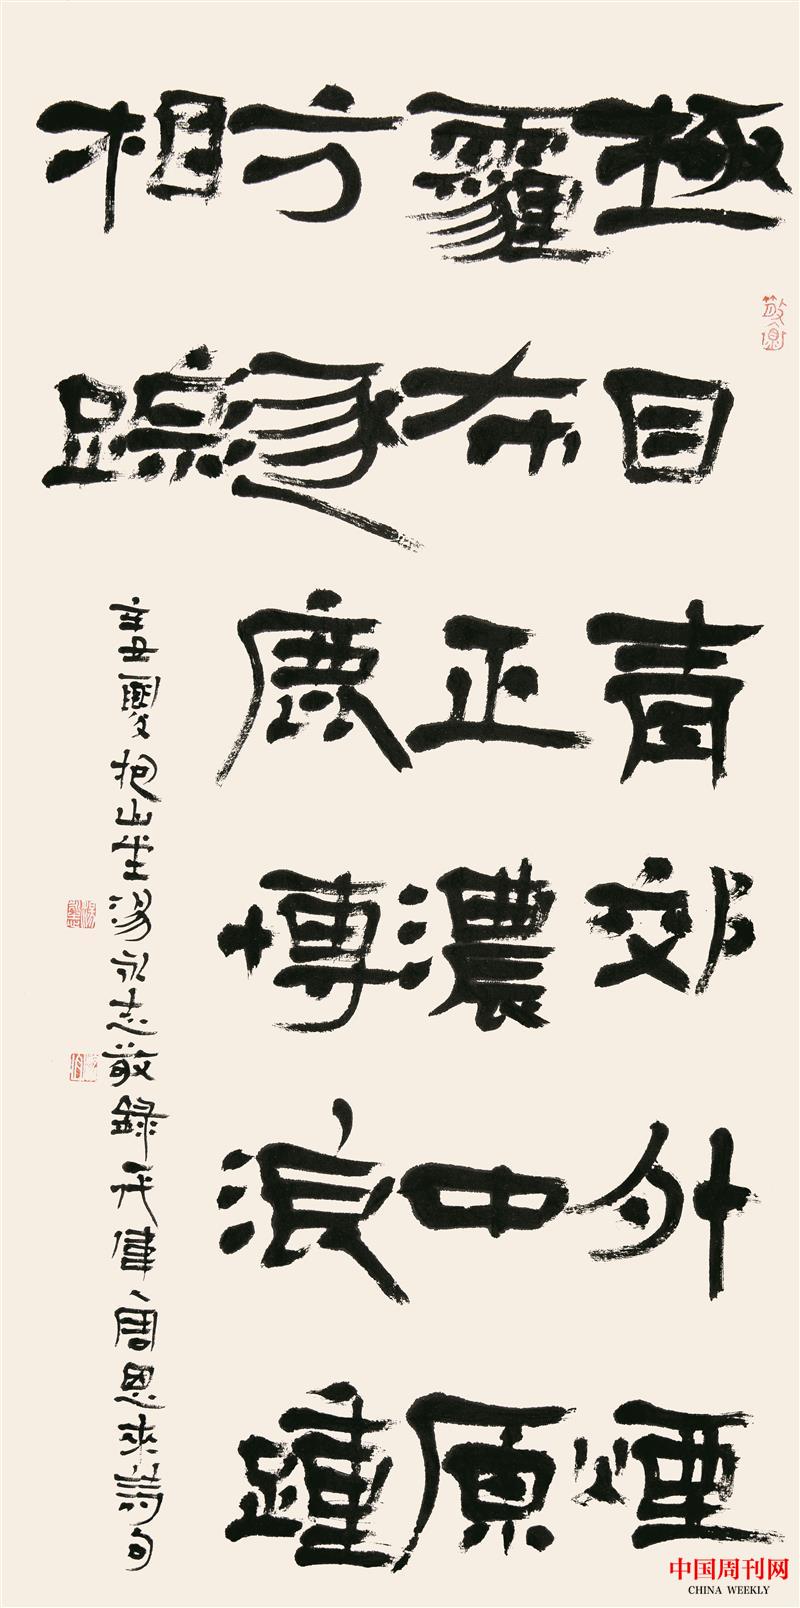 極目青郊外煙
霾布正濃中原
方逐鹿博浪踵
相踪
辛丑夏抱山堂湯永志敬錄一代偉人周恩來詩句
中国周刊网
CHINA WEEKLY